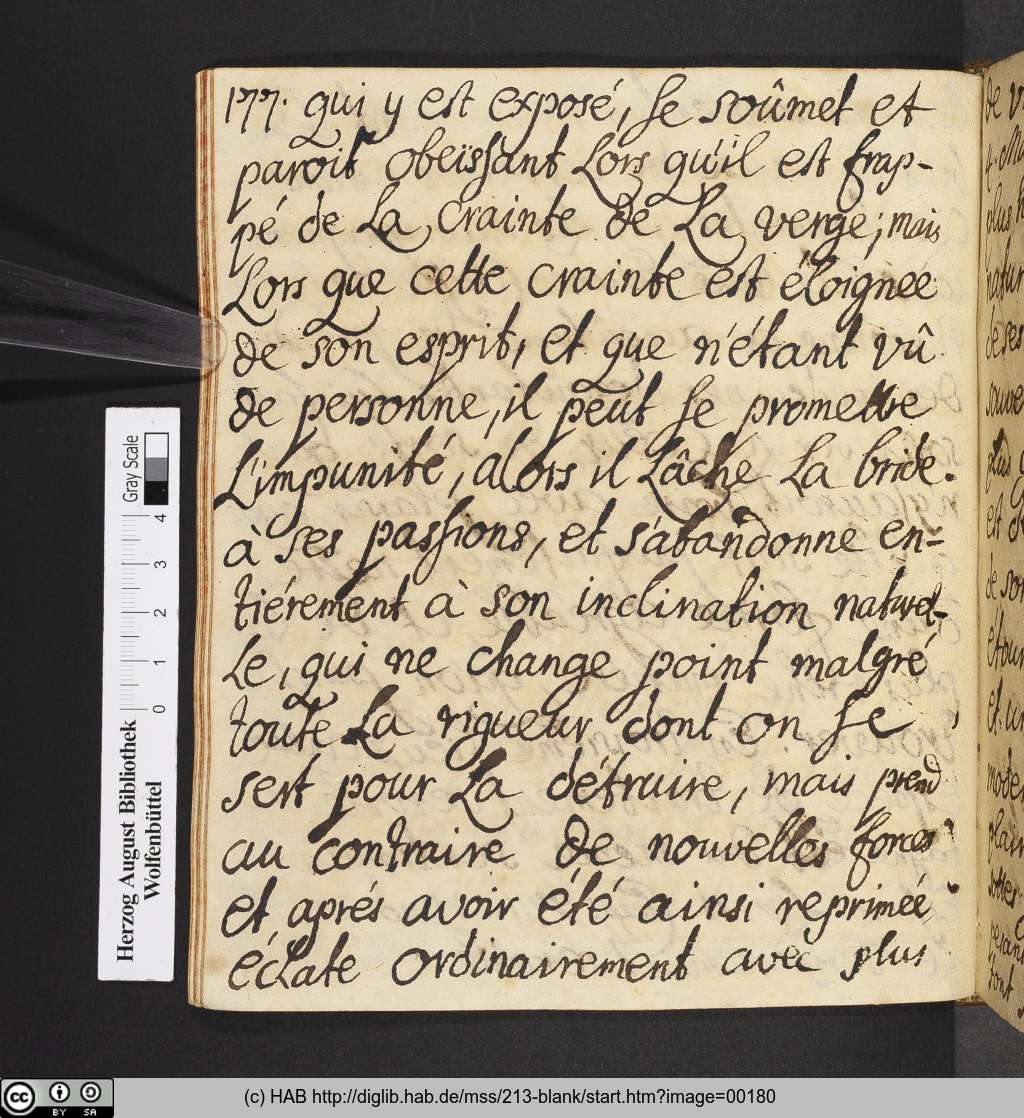 177. qui y est exposé, se soûmet et
paroit obeïssant Lors qu'il est frap-
pé de La Crainte de La verge; mais
Lors que cette crainte est éloignée
de son esprit, et que n'étant vû
de personne, il peut se promettre
L'impunité, alors il Lâche La bride
à ses passions, et s'abandonne en-
tiérement à son inclination naturel-
Le, qui ne change point malgré
toute La rigueur dont on se
sert pour La détruire, mais prend
au contraire de nouvelles forces
et aprés avoir été ainsi reprimée
éclate ordinairement avec plus
Gray Scale
4
3
2
1
0
Herzog August Bibliothek
Wolfenbüttel
cc BY SA
(c) HAB http://diglib.hab.de/mss/213-blank/start.htm?image=00180